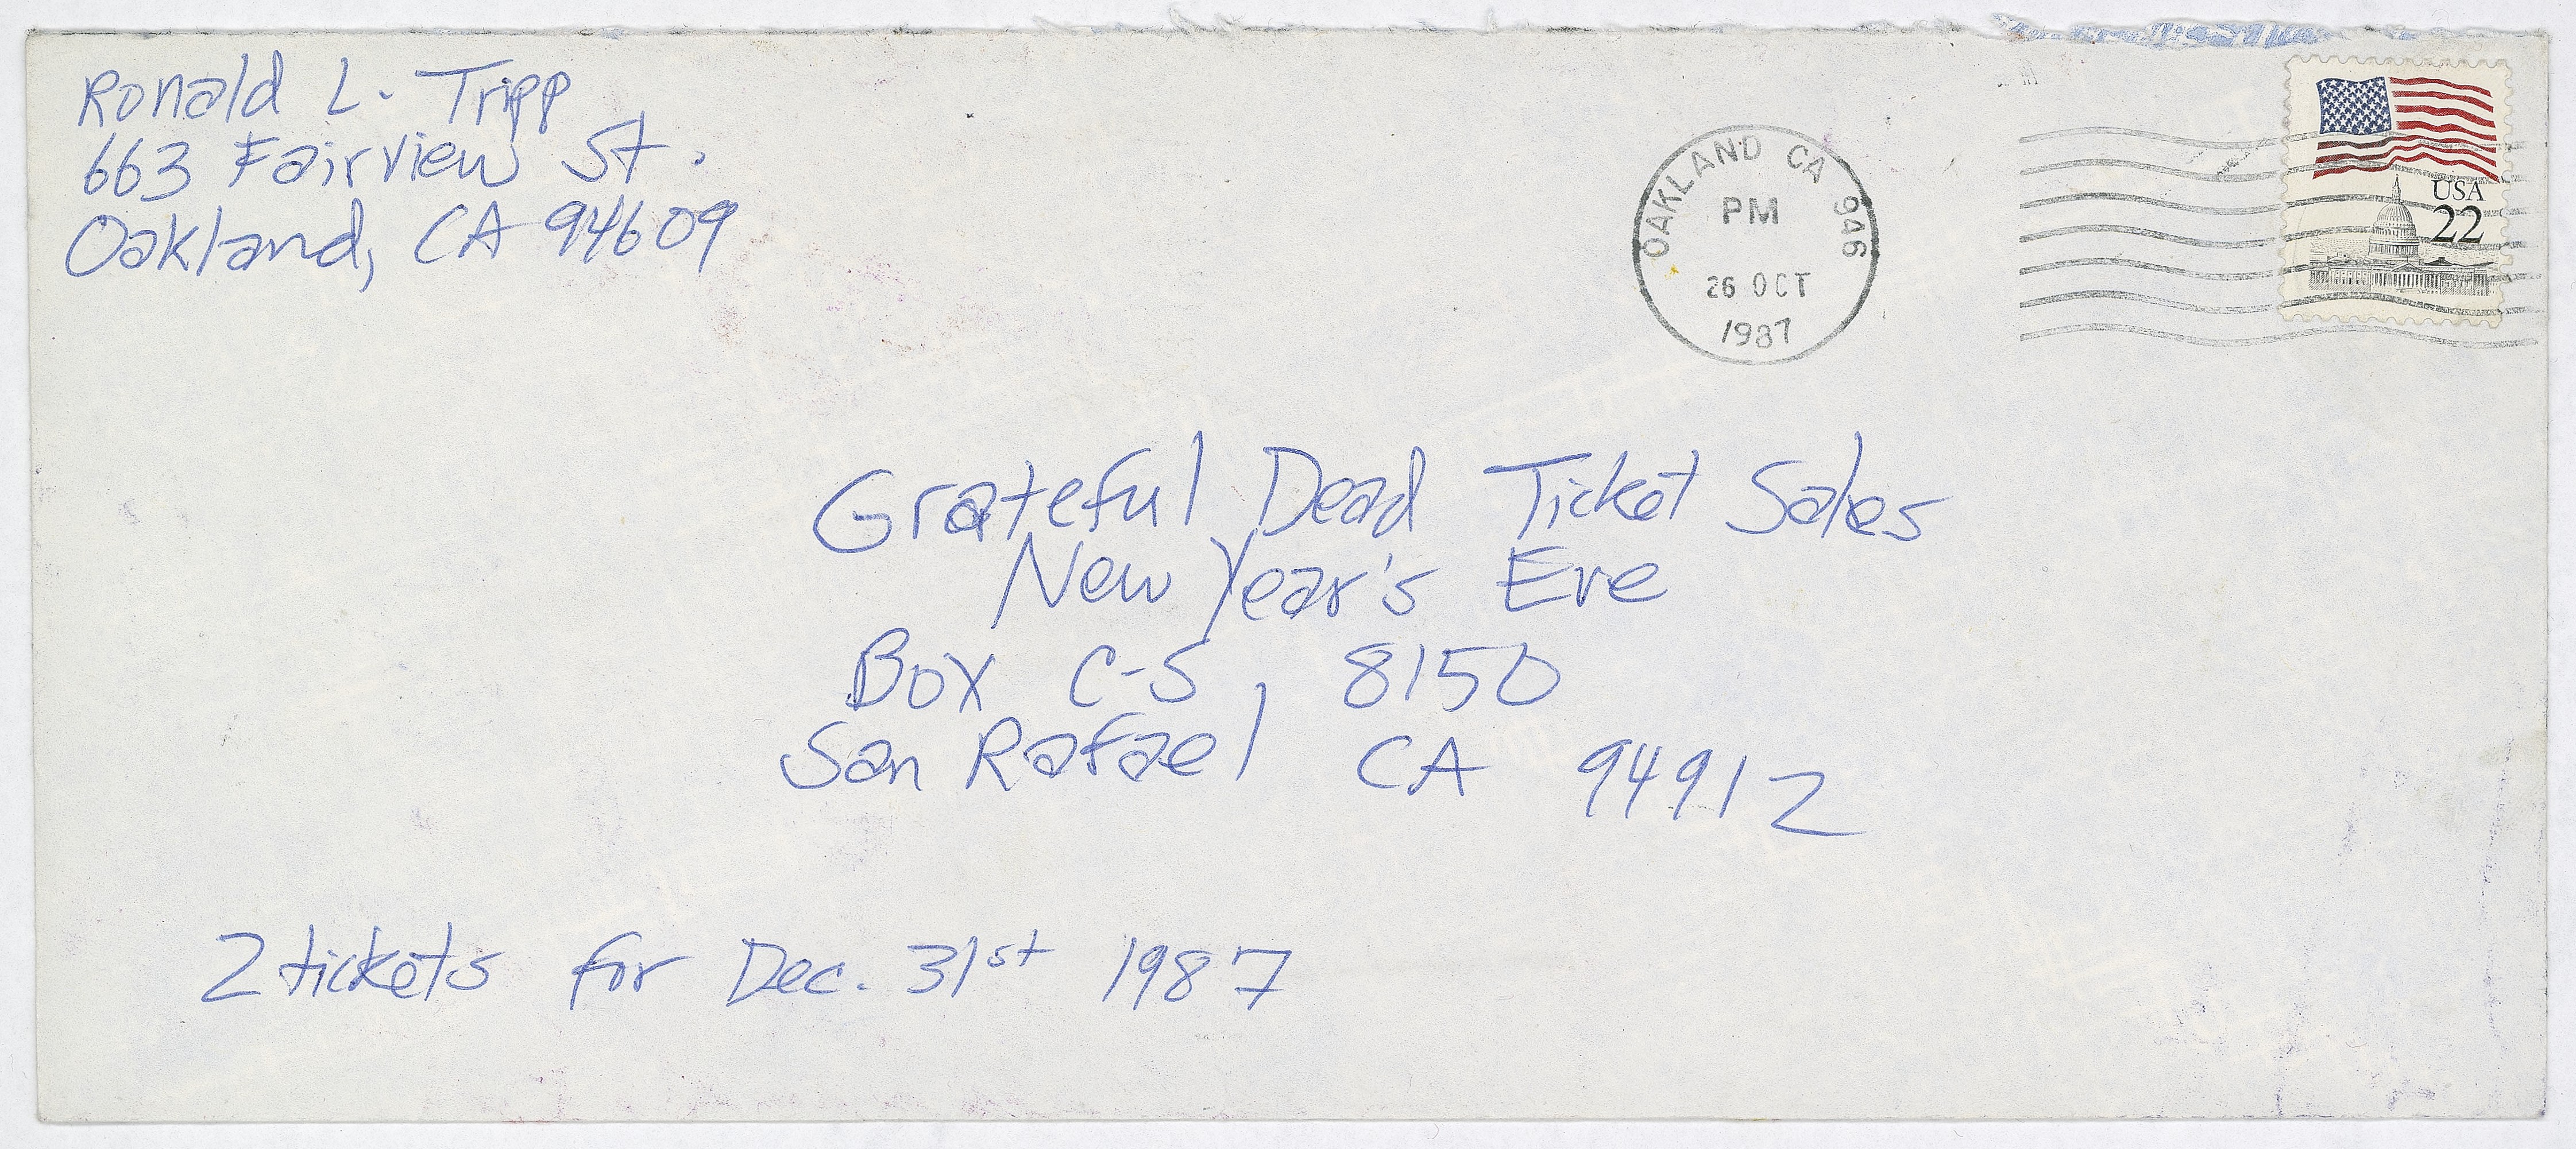 Ronald L. Tripp
663 Fairview St.
Oakland, CA 94609
OAKLAND CA 946
PM
26 OCT
1987
USA
22
Grateful Dead Ticket Sales
New Year's Eve
Box C-S, 8150
San Rafael CA 94912
2 tickets for Dec. 31st 1987